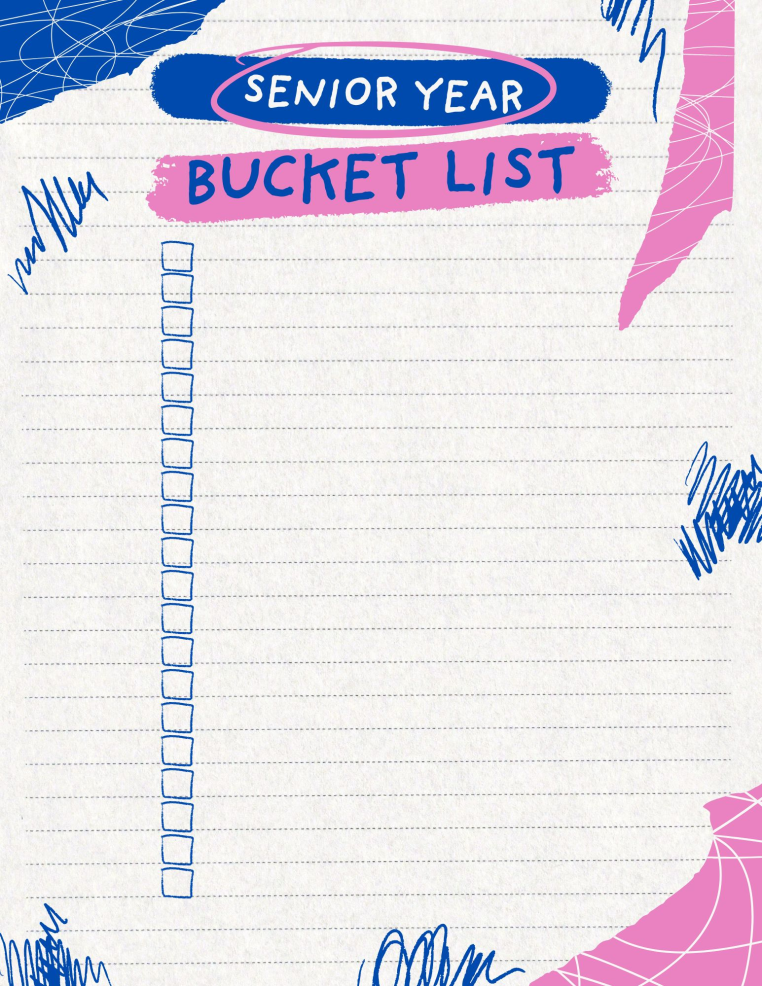 SENIOR YEAR
BUCKET LIST